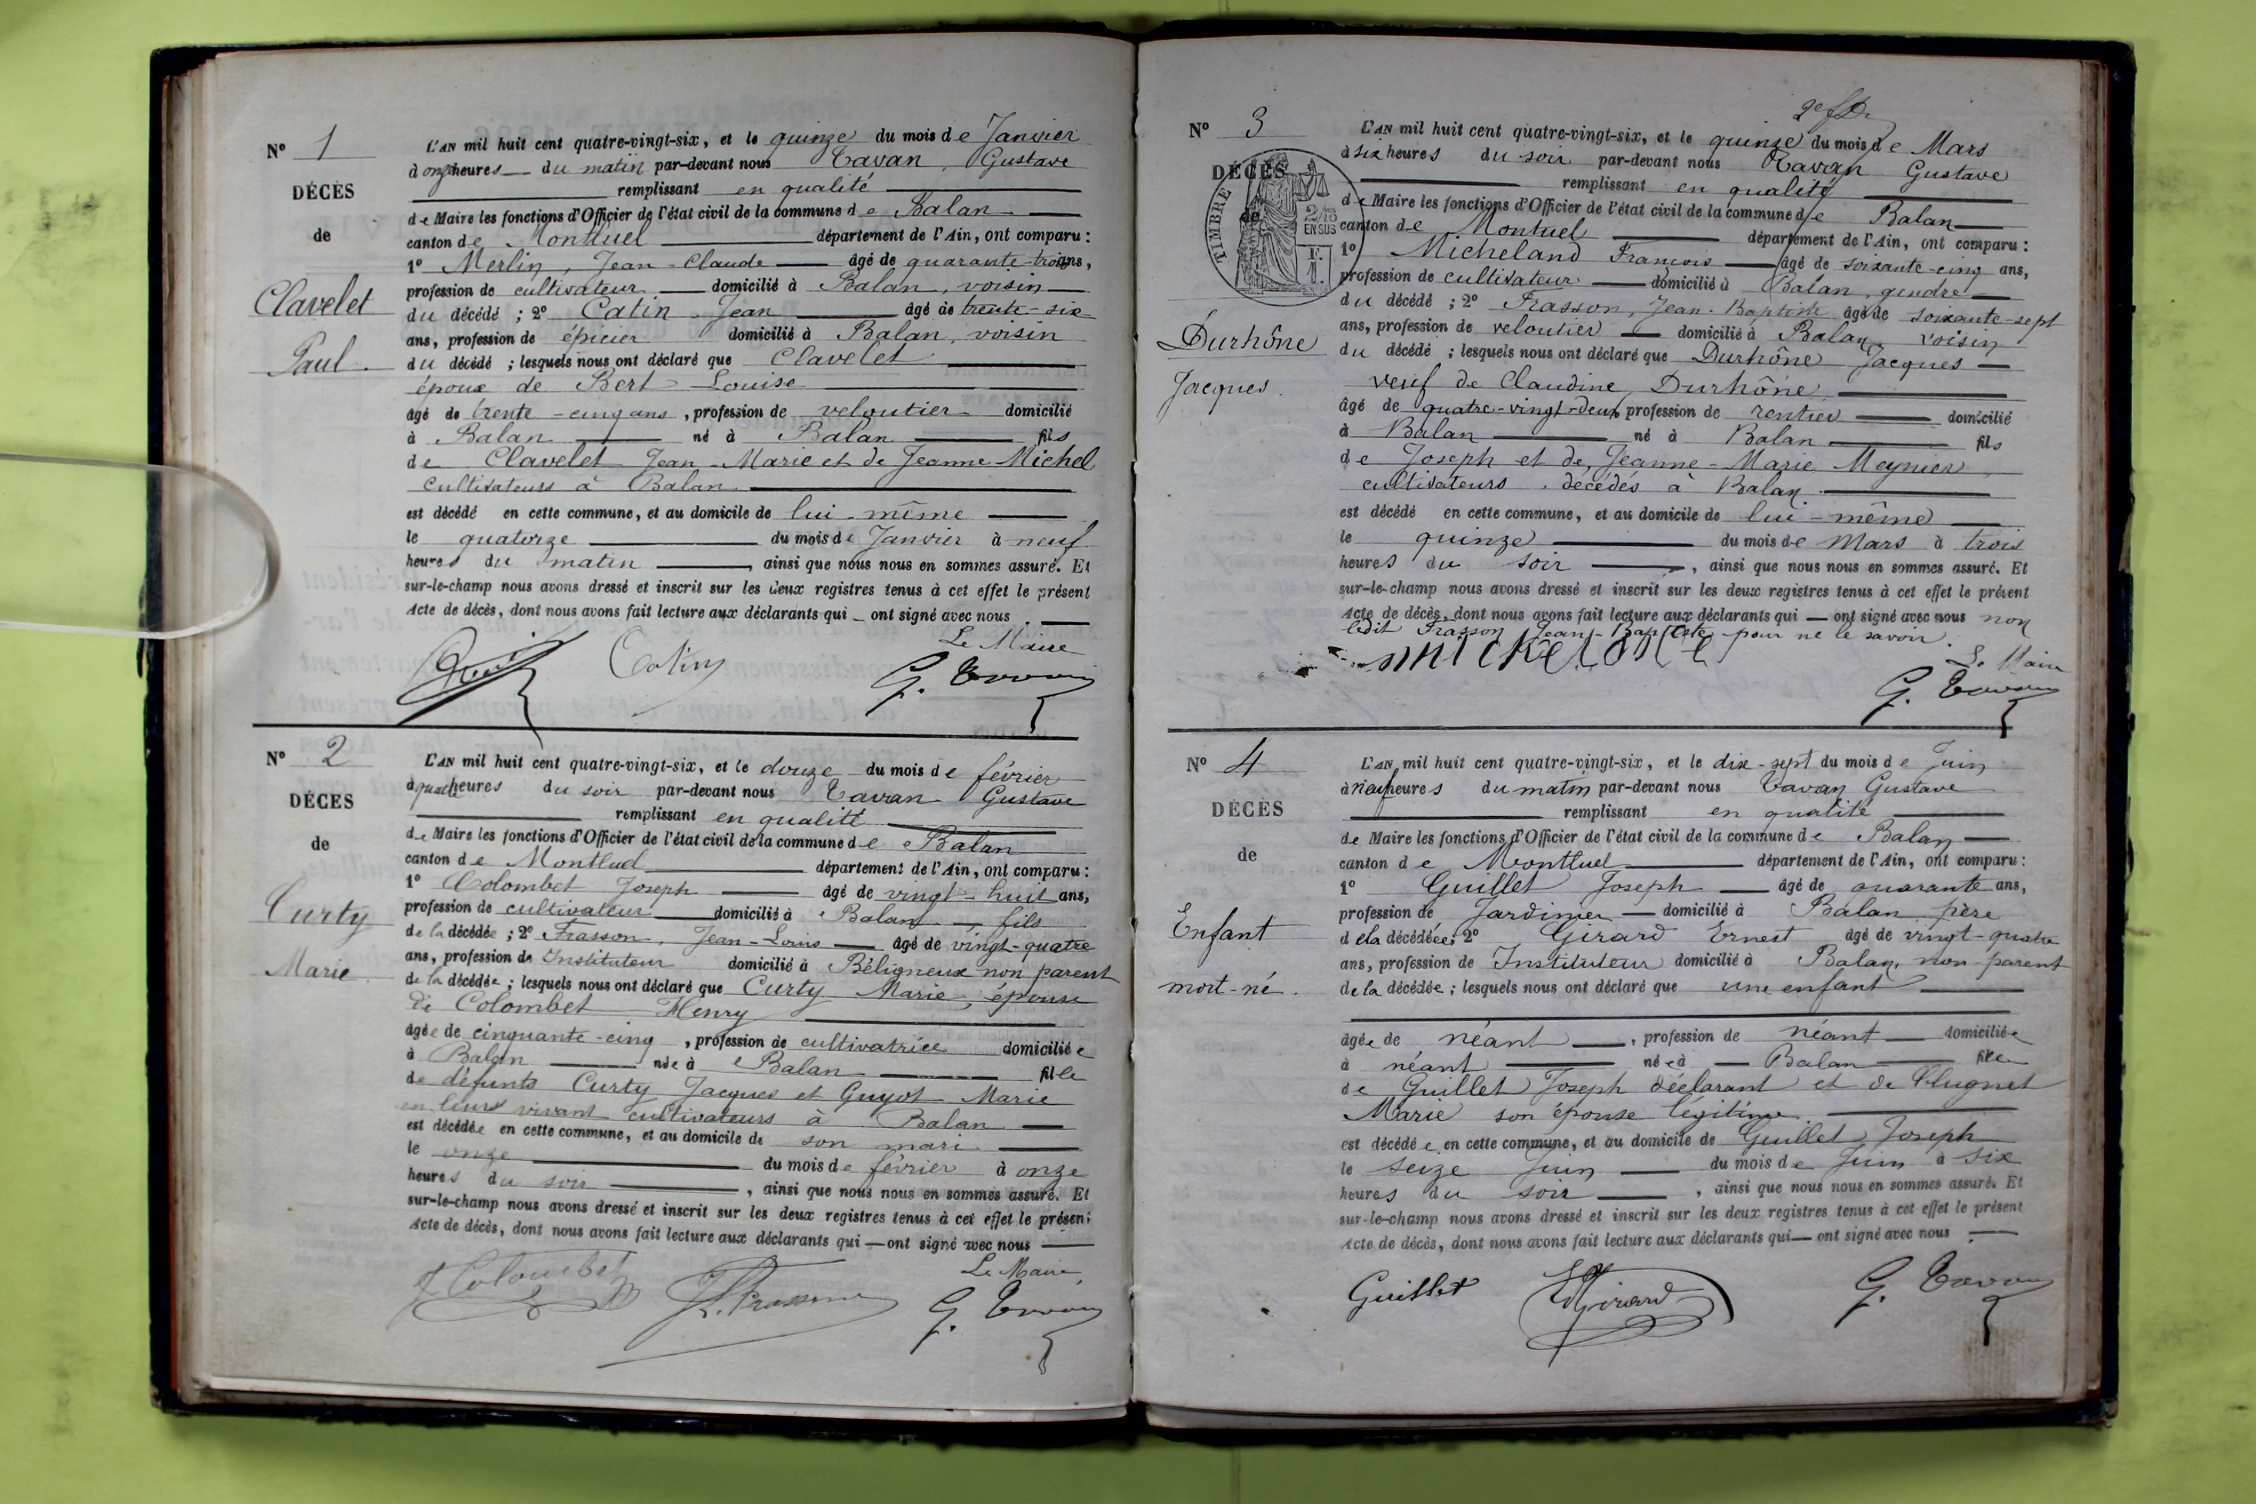 N° 1
DÉCÈS
de
Clavelet
Paul
L'AN mil huit cent quatre-vingt-six, et le quinze du mois de Janvier
à onze heures du matin par-devant nous Tavan, Gustave
remplissant en qualité
de Maire les fonctions d'Officier de l'état civil de la commune de Balan
canton de Montluel département de l'Ain, ont comparu :
1° Merlin, Jean-Claude âgé de quarante-trois ans,
profession de cultivateur domicilié à Balan, voisin
du décédé ; 2° Catin Jean âgé de trente-six
ans, profession de épicier domicilié à Balan, voisin
du décédé ; lesquels nous ont déclaré que Clavelet
époux de Bert Louise
âgé de trente-cinq ans, profession de veloutier domicilié
à Balan né à Balan fils
de Clavelet Jean-Marie et de Jeanne Michel
cultivateurs à Balan
est décédé en cette commune, et au domicile de lui-même
le quatorze du mois de Janvier à neuf
heures du matin, ainsi que nous nous en sommes assuré. Et
sur-le-champ nous avons dressé et inscrit sur les deux registres tenus à cet effet le présent
Acte de décès, dont nous avons fait lecture aux déclarants qui ont signé avec nous.
Le Maire
Catin
G. Tavan
N° 2
DÉCES
de
Curty
Marie
L'AN mil huit cent quatre-vingt-six, et le douze du mois de février
à quatre heures du soir par-devant nous Tavan Gustave
remplissant en qualité
de Maire les fonctions d'Officier de l'état civil de la commune de Balan
canton de Montluel département de l'Ain, ont comparu :
1° Colombet Joseph âgé de vingt-huit ans,
profession de cultivateur domicilié à Balan, fils
de la décédée ; 2° Frasson, Jean-Louis âgé de vingt-quatre
ans, profession de Instituteur domicilié à Béligneux non parent
de la décédée ; lesquels nous ont déclaré que Curty Marie, épouse
de Colombet Henry
âgée de cinquante-cinq, profession de cultivatrice domiciliée
à Balan née à Balan fille
de défunts Curty Jacques et Guyot Marie
en leur vivant cultivateurs à Balan
est décédée en cette commune, et au domicile de son mari
le onze du mois de février à onze
heures du soir, ainsi que nous nous en sommes assuré. Et
sur-le-champ nous avons dressé et inscrit sur les deux registres tenus à cet effet le présent
Acte de décès, dont nous avons fait lecture aux déclarants qui ont signé avec nous
Le Maire,
J Colombet
J. L. Frasson
G. Tavan
N° 3
DÉCÈS
de
TIMBRE
2/10
EN SUS
Durhône
Jacques
L'AN mil huit cent quatre-vingt-six, et le quinze du mois de Mars
à six heures du soir par-devant nous Tavan Gustave
remplissant en qualité
de Maire les fonctions d'Officier de l'état civil de la commune de Balan
canton de Montuel département de l'Ain, ont comparu :
1° Micheland François âgé de soixante-cinq ans,
profession de cultivateur domicilié à Balan, gendre
du décédé ; 2° Frasson, Jean-Baptiste âgé de soixante-sept
ans, profession de veloutier domicilié à Balan, voisin
du décédé ; lesquels nous ont déclaré que Durhône Jacques
veuf de Claudine Durhône
âgé de quatre-vingt-deux, profession de rentier domicilié
à Balan né à Balan fils
de Joseph et de Jeanne-Marie Meynier
cultivateurs décédés à Balan
est décédé en cette commune, et au domicile de lui-même
le quinze du mois de Mars à trois
heures du soir, ainsi que nous nous en sommes assuré. Et
sur-le-champ nous avons dressé et inscrit sur les deux registres tenus à cet effet le présent
Acte de décès, dont nous avons fait lecture aux déclarants qui ont signé avec nous non
ledit Frasson Jean-Baptiste pour ne le savoir.
Le Maire
G. Tavan
N° 4
DÉCÈS
de
Enfant
mort-né.
L'AN mil huit cent quatre-vingt-six, et le dix-sept du mois de Juin
à neuf heures du matin par-devant nous Tavan Gustave
remplissant en qualité
de Maire les fonctions d'Officier de l'état civil de la commune de Balan
canton de Montluel département de l'Ain, ont comparu :
1° Guillet Joseph âgé de quarante ans,
profession de Jardinier domicilié à Balan père
de la décédée ; 2° Girard Ernest âgé de vingt-quatre
ans, profession de Instituteur domicilié à Balan, non parent
de la décédée ; lesquels nous ont déclaré que une enfant
âgée de néant, profession de néant domiciliée
à néant née à Balan fille
de Guillet Joseph déclarant et de Clugnet
Marie son épouse légitime
est décédée en cette commune, et au domicile de Guillet Joseph
le seize Juin du mois de Juin à six
heures du soir, ainsi que nous nous en sommes assuré. Et
sur-le-champ nous avons dressé et inscrit sur les deux registres tenus à cet effet le présent
Acte de décès, dont nous avons fait lecture aux déclarants qui ont signé avec nous
Guillet
E Girard
G. Tavan